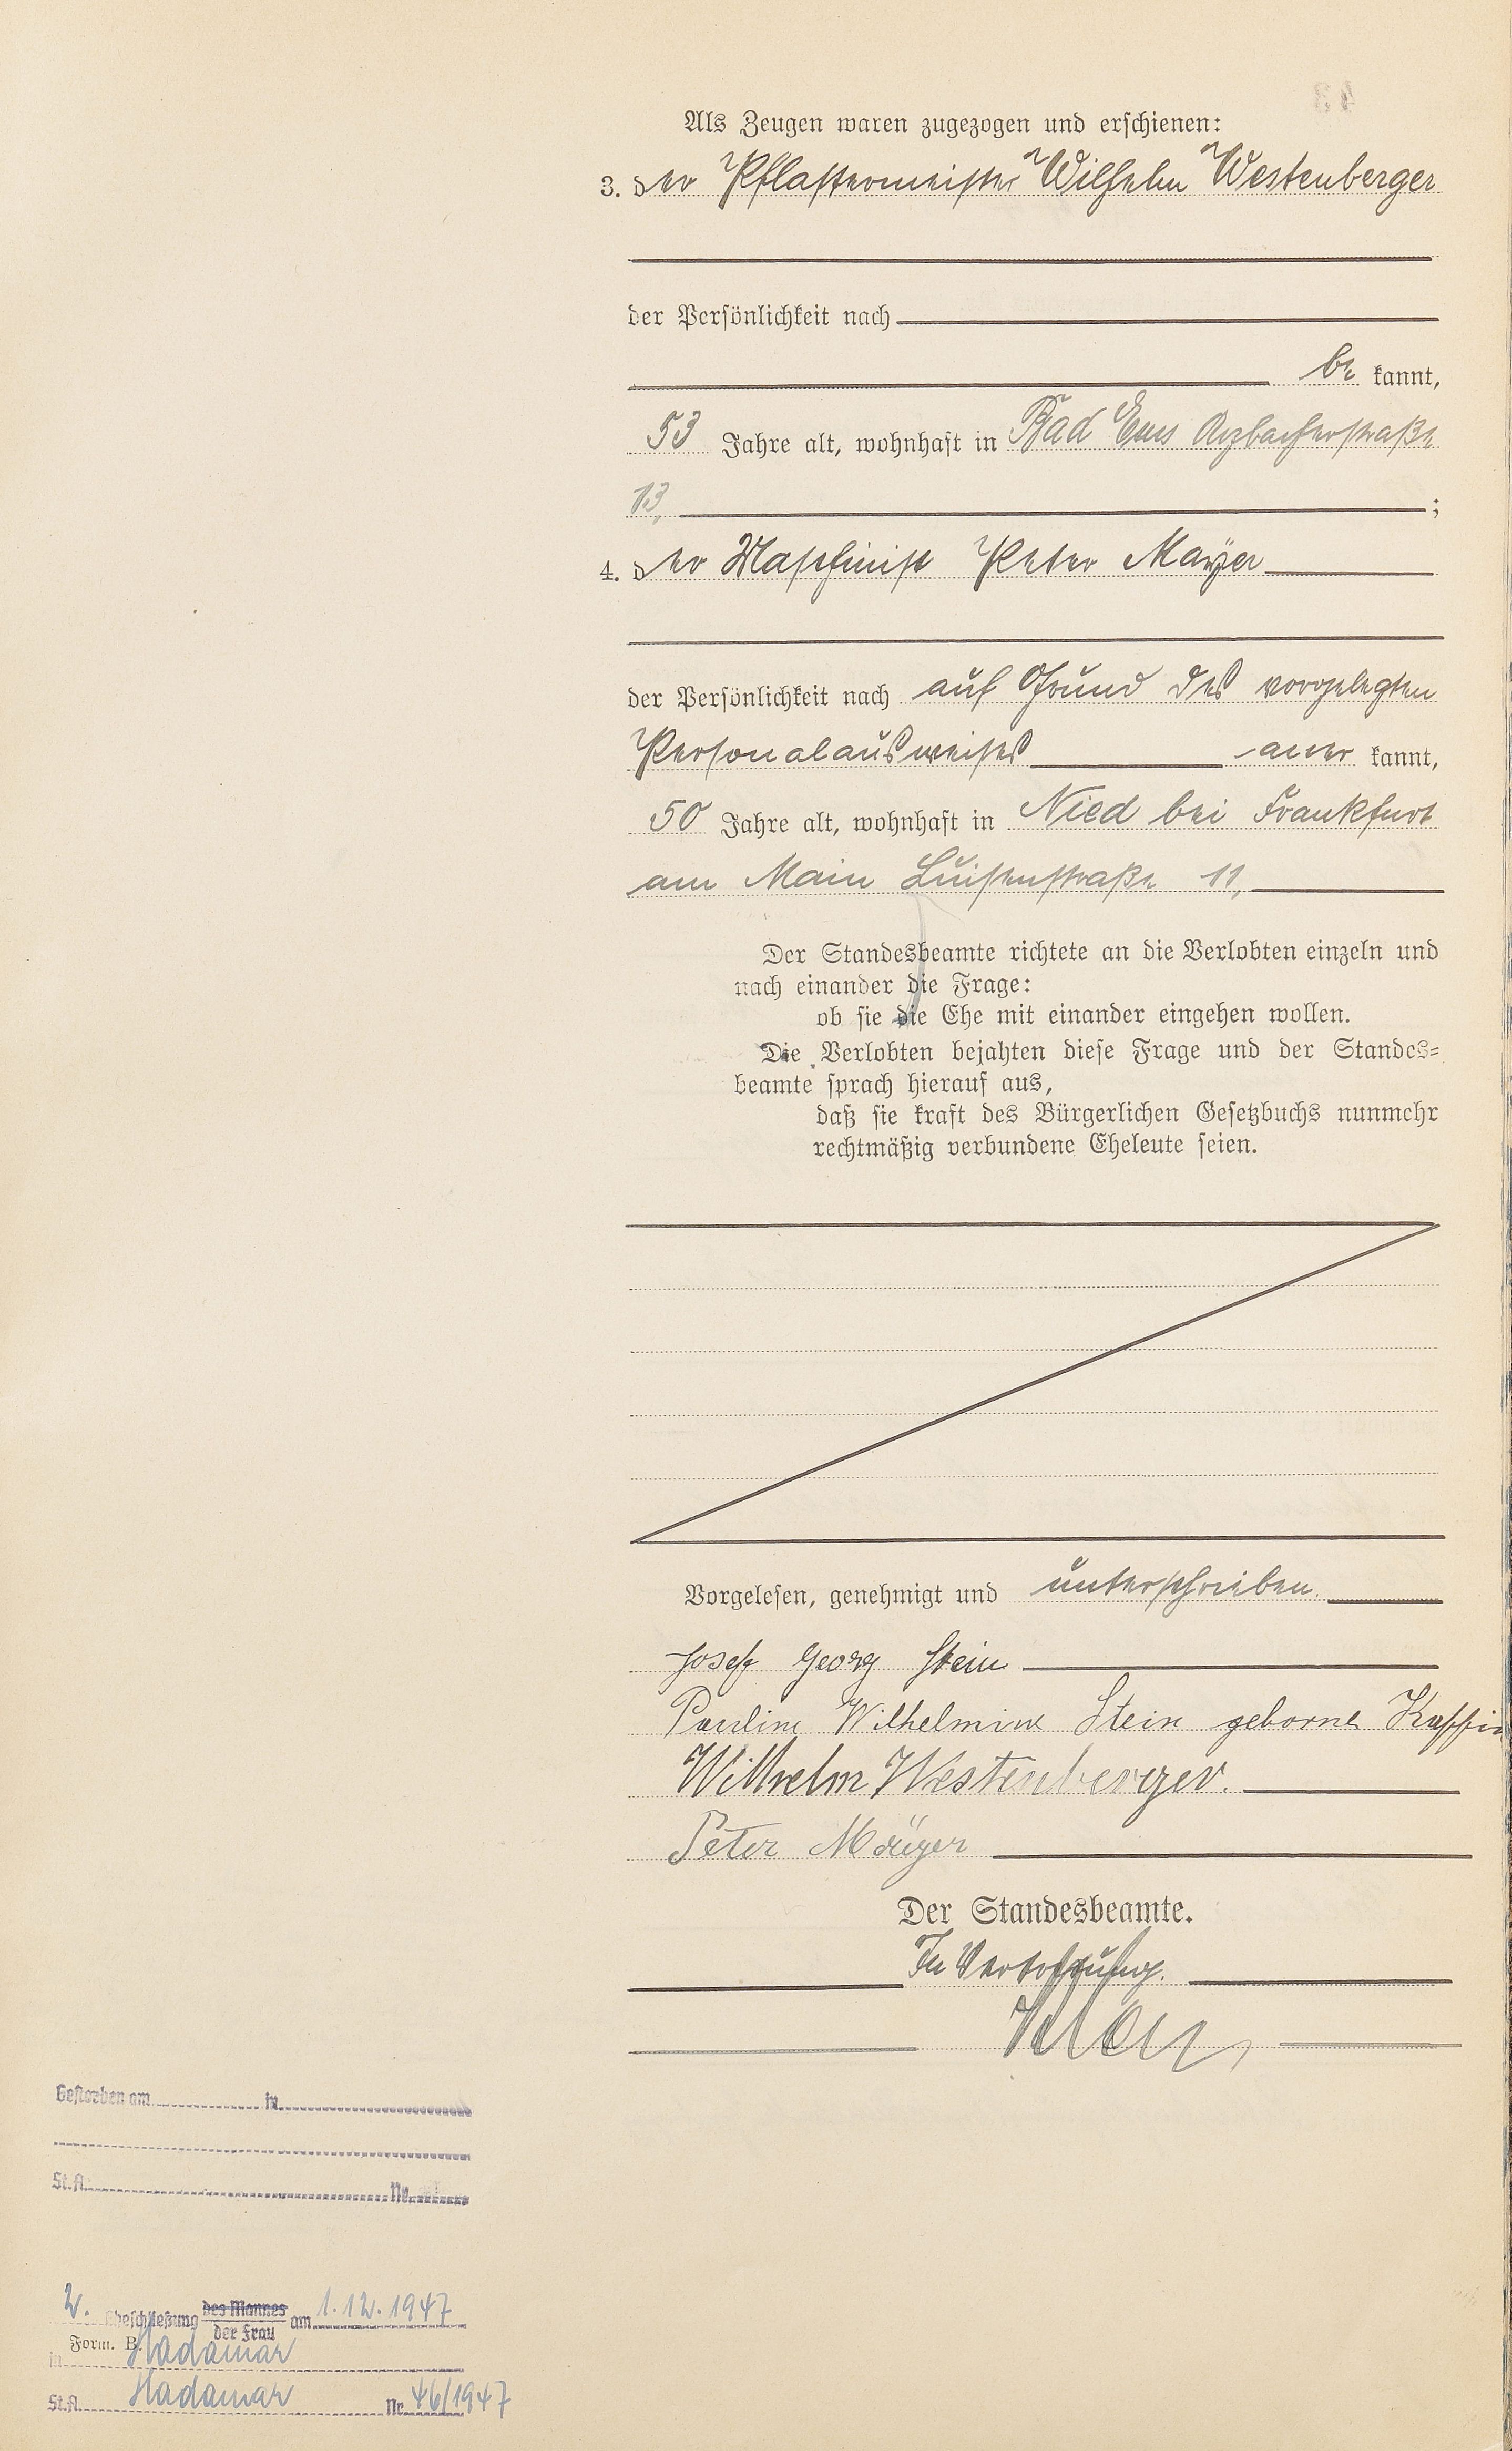 Als Zeugen waren zugezogen und erschienen:
3. der Pflastermeister Wilhelm Westenberger
der Persönlichkeit nach
be kannt,
53 Jahre alt, wohnhaft in Bad Ems Arzbacherstraße
13, ;
4. der Maschinist Peter Mayer
der Persönlichkeit nach auf Grund des vorgelegten
Personalausweises aner kannt,
50 Jahre alt, wohnhaft in Nied bei Frankfurt
am Main Luisenstraße 11,
Der Standesbeamte richtete an die Verlobten einzeln und
nach einander die Frage:
ob sie die Ehe mit einander eingehen wollen.
Die Verlobten bejahten diese Frage und der Standes-
beamte sprach hierauf aus,
daß sie kraft des Bürgerlichen Gesetzbuchs nunmehr
rechtmäßig verbundene Eheleute seien.
Vorgelesen, genehmigt und unterschrieben.
Josef Georg Stein
Pauline Wilhelmine Stein geborne
Wilhelm Westenberger.
Peter
Der Standesbeamte.
In Vertretung.
Gestorben am in
St.A. Nr.
2. Eheschließung des Mannes der Frau am 1.12.1947
Form. B.
in Hadamar
St.A. Hadamar Nr. 46/1947